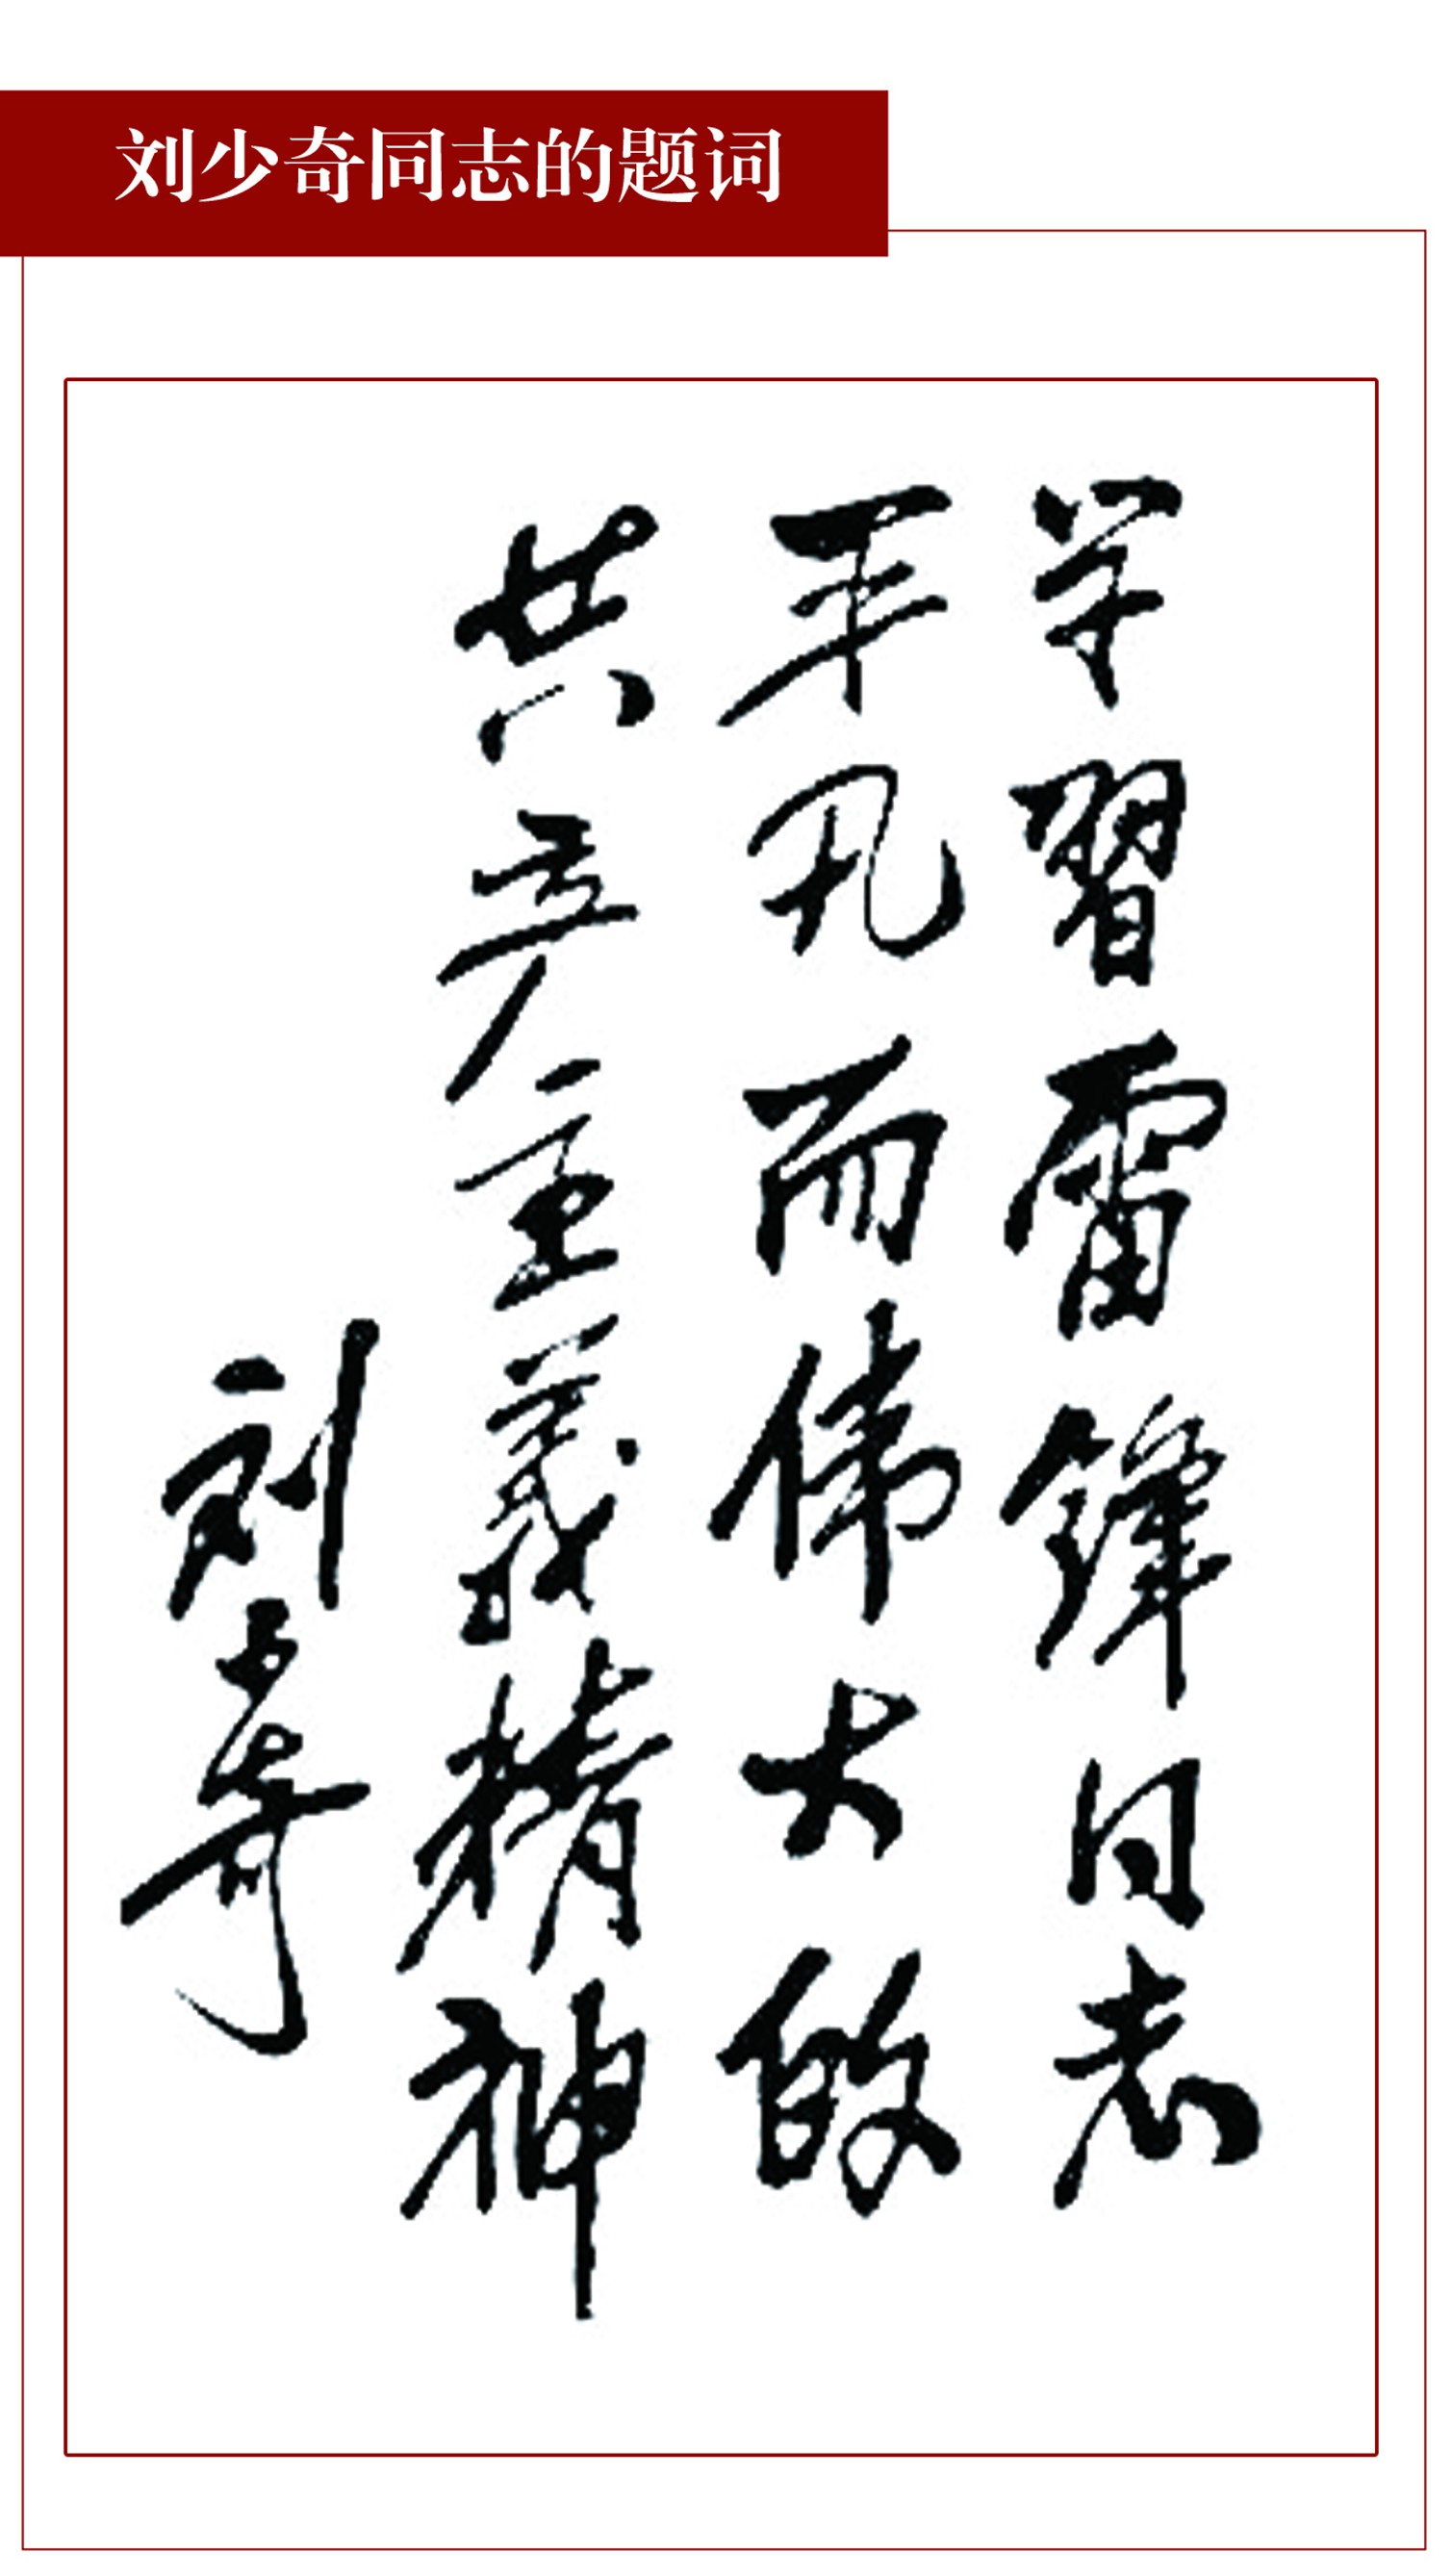 刘少奇同志的题词
学習雷鋒同志
平凡而伟大的
共产主義精神
刘少奇